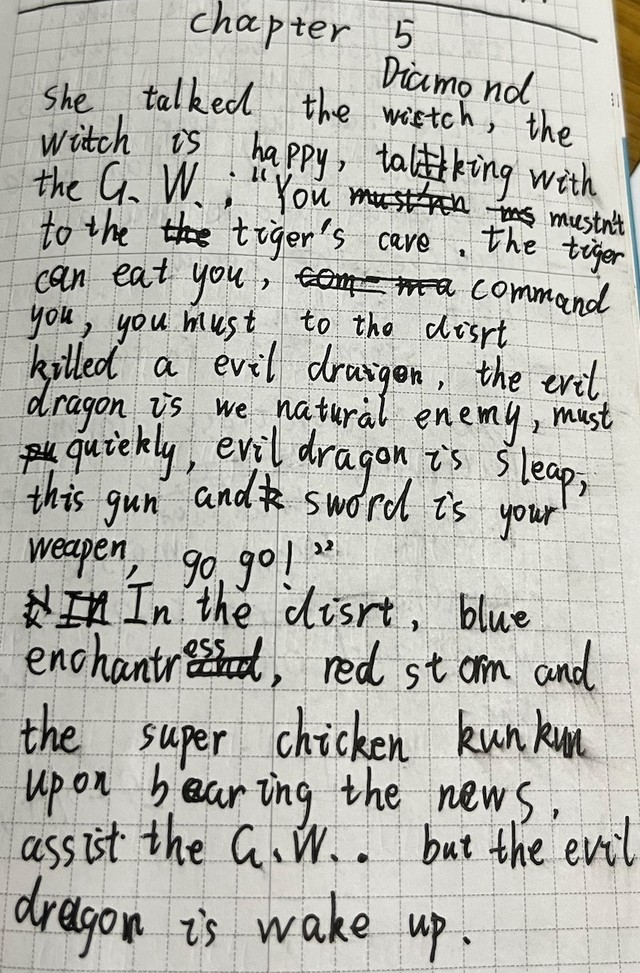 chapter 5
Diamond
She talked the wictch, the
witch is happy, talking with
the G. W. : "You mustn't
to the tiger's cave. the tiger
can eat you, command
you, you must to the disrt
killed a evil draigon, the evil
dragon is we natural enemy, must
quickly, evil dragon is sleap,
this gun and sword is your
weapen, go go! "
In the disrt, blue
enchantress, red storm and
the super chicken kunkun
upon bearing the news,
assist the G.W.. but the evil
dragon is wake up.